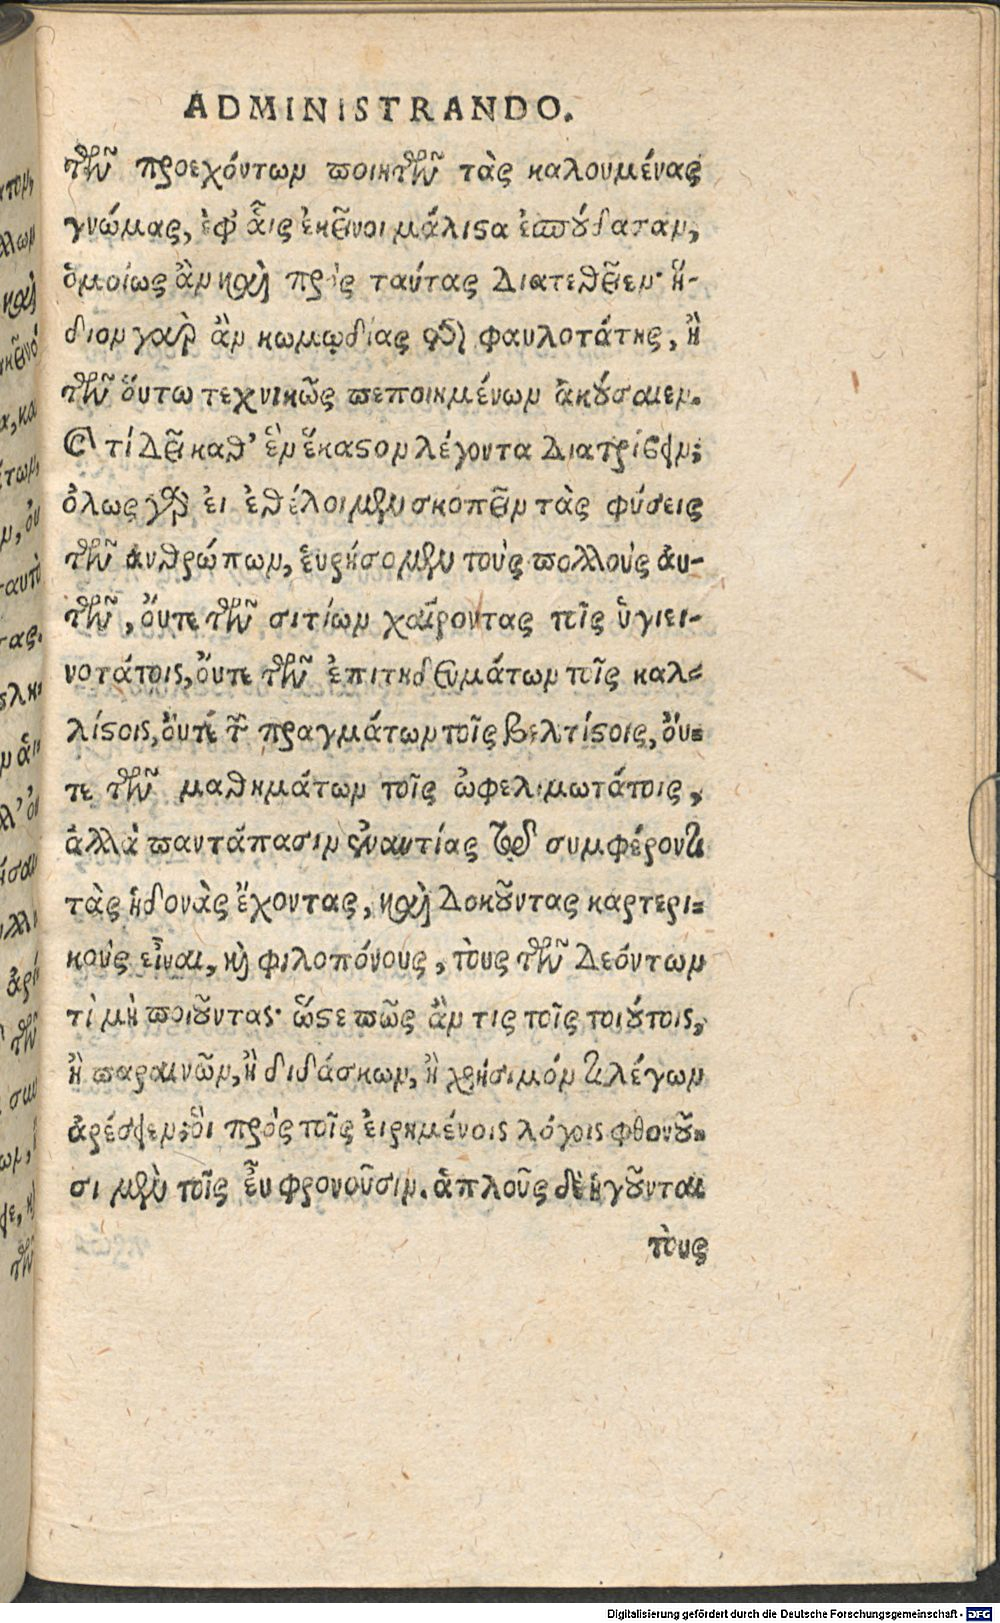 ADMINISTRANDO.
τῶν προεχόντων ποιητῶν τὰς καλουμένας
γνώμας, ἐφ' αἷς ἐκεῖνοι μάλιστα ἐσπούδασαν,
ὁμοίως ἂν καὶ πρὸς ταύτας διατεθεῖεν· ἥ-
διον γαρ ἂν κωμῳδίας τῆς φαυλοτάτης, ἢ
τῶν ὅυτω τεχνικῶς πεποιημένων ἀκούσαιεν.
Ετί δεῖ καθ' ἓν ἕκαστον λέγοντα διατρίβειν;
ὅλως γὰρ ἐι ἐθέλοιμεν σκοπεῖν τὰς φύσεις
τῶν ἀνθρώπων, ἑυρήσομεν τοὺς πολλοὺς ἀυ-
τῶν, ὄυτε τῶν σιτίων χαίροντας τοῖς ὑγιει-
νοτάτοις, ὄυτε τῶν ἐπιτηδευμάτων τοῖς καλ-
λίστοις, ὄυτε τῶν πραγμάτων τοῖς βελτίστοις, ὄυ-
τε τῶν μαθημάτων τοῖς ὠφελιμωτάτοις,
ἀλλὰ παντάπασιν ἐναντίας τῷ συμφέροντι
τὰς ἡδονὰς ἔχοντας, καὶ δοκοῦντας καρτερι-
κοὺς εἶναι, καὶ φιλοπόνους, τοὺς τῶν δεόντων
τὶ μὴ ποιοῦντας· ὥστε πῶς ἄν τις τοῖς τοιούτοις,
ἢ παραινῶν, ἢ διδάσκων, ἢ χρήσιμόν τι λέγων
ἀρέσειεν; ὃι πρὸς τοῖς ἐιρημένοις λόγοις φθονοῦ-
σι μὲν τοῖς ἐυ φρονοῦσιν. ἁπλοῦς δὲ ἡγοῦνται
τοὺς
Digitalisierung gefördert durch die Deutsche Forschungsgemeinschaft - DFG